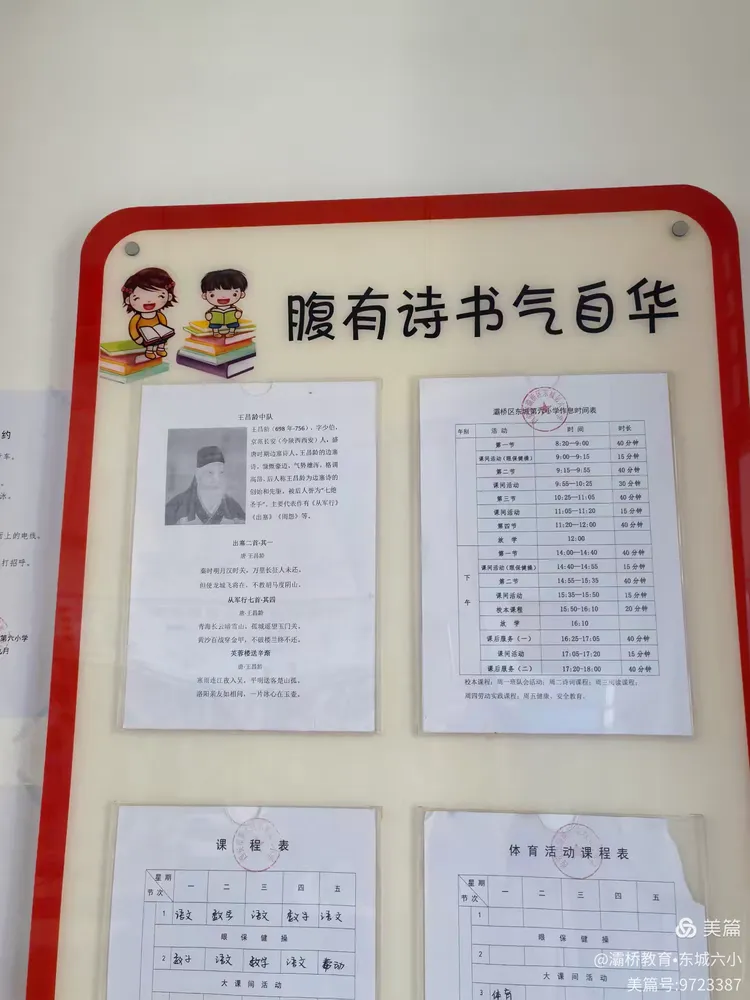 腹有诗书气自华
王昌龄中队
王昌龄（698年-756），字少伯，
京兆长安（今陕西西安）人，盛
唐时期边塞诗人，王昌龄的边塞
诗，慷慨豪迈，气势雄浑，格调
高昂，后人称王昌龄为边塞诗的
创始和先驱，被后人誉为“七绝
圣手”。主要代表作有《从军行》
《出塞》《闺怨》等。
出塞二首·其一
唐·王昌龄
秦时明月汉时关，万里长征人未还。
但使龙城飞将在，不教胡马度阴山。
从军行七首·其四
唐·王昌龄
青海长云暗雪山，孤城遥望玉门关。
黄沙百战穿金甲，不破楼兰终不还。
芙蓉楼送辛渐
唐·王昌龄
寒雨连江夜入吴，平明送客楚山孤。
洛阳亲友如相问，一片冰心在玉壶。
灞桥区东城第六小学作息时间表
午别 活动 时间 时长
第一节 8:20--9:00 40分钟
课间活动（眼保健操） 9:00--9:15 15分钟
第二节 9:15--9:55 40分钟
课间活动 9:55--10:25 30分钟
第三节 10:25--11:05 40分钟
课间活动 11:05--11:20 15分钟
第四节 11:20--12:00 40分钟
放 学 12:00
下午
第一节 14:00--14:40 40分钟
课间活动（眼保健操） 14:40--14:55 15分钟
第二节 14:55--15:35 40分钟
课间活动 15:35--15:50 15分钟
校本课程 15:50-16:10 20分钟
放 学 16:10
课后服务（一） 16:25-17:05 40分钟
课间活动 17:05-17:20 15分钟
课后服务（二） 17:20-18:00 40分钟
校本课程：周一班队会活动；周二诗词课程；周三阅读课程；
周四劳动实践课程；周五健康、安全教育。
课 程 表
星期 节次 一 二 三 四 五
1 语文 数学 语文 数学 语文
眼 保 健 操
2 数学 语文 数学 语文 劳动
大 课 间 活 动
体育活动课程表
星期 节次 一 二 三 四 五
1
眼 保 健 操
2
大 课 间 活 动
3 体育
约
车。
水。
面上的电线。
打招呼。
第六小学
月
美篇
@灞桥教育•东城六小
美篇号:9723387